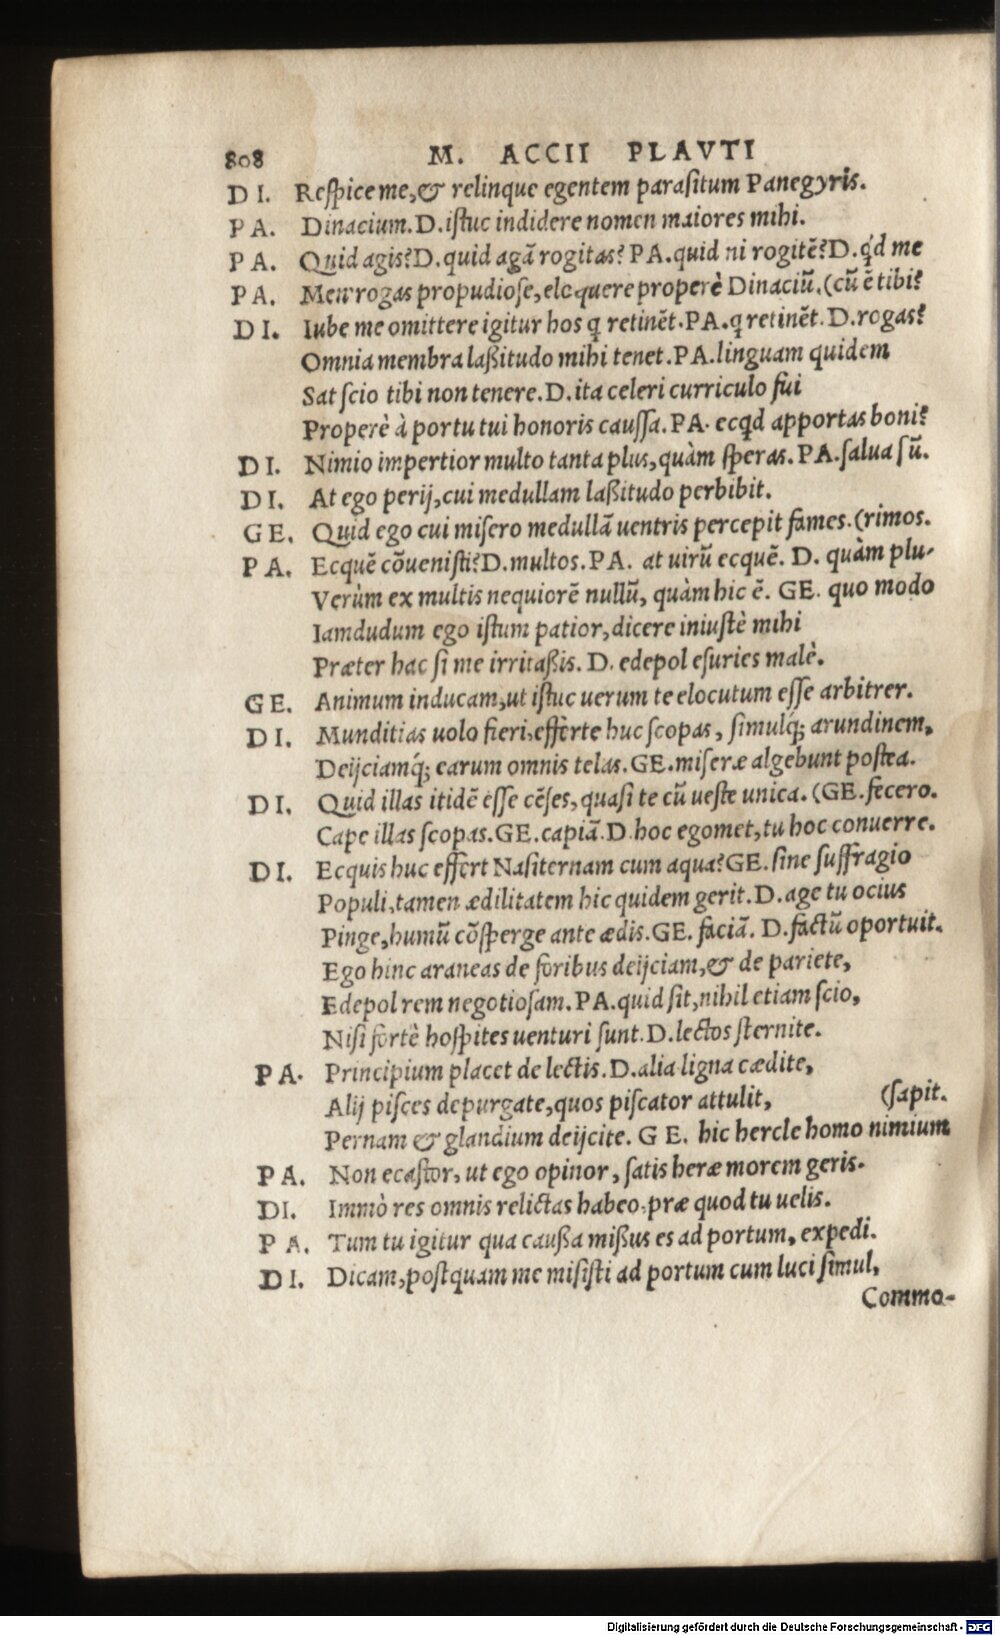 808 M. ACCII PLAVTI
DI. Respice me,& relinque egentem parasitum Panegyris.
PA. Dinacium.D.istuc indidere nomen maiores mihi.
PA. Quid agis?D.quid agā rogitas? PA.quid ni rogitē?D.qd me
PA. Men' rogas propudiose,eloquere properè Dinaciū.(cū ē tibi?
DI. Iube me omittere igitur hos q retinēt.PA.q retinēt.D.rogas?
Omnia membra laßitudo mihi tenet.PA.linguam quidem
Sat scio tibi non tenere.D.ita celeri curriculo fui
Properè à portu tui honoris caussa.PA. ecqd apportas boni?
DI. Nimio impertior multo tanta plus,quàm speras.PA.salua sū.
DI. At ego perij,cui medullam laßitudo perbibit.
GE. Quid ego cui misero medullā uentris percepit fames.(rimos.
PA. Ecquē cōuenisti?D.multos.PA. at uirū ecquē. D. quàm plu-
Verùm ex multis nequiorē nullū, quàm hic ē. GE. quo modo
Iamdudum ego istum patior,dicere iniustè mihi
Præter hac si me irritaßis. D. edepol esuries malè.
GE. Animum inducam,ut istuc uerum te elocutum esse arbitrer.
DI. Munditias uolo fieri,efferte huc scopas, simulq́; arundinem,
Deijciamq́; earum omnis telas.GE.miseræ algebunt postea.
DI. Quid illas itidē esse cēses,quasi te cū ueste unica.(GE.fecero.
Cape illas scopas.GE.capiā.D.hoc egomet,tu hoc conuerre.
DI. Ecquis huc effert Nasiternam cum aqua?GE.sine suffragio
Populi,tamen ædilitatem hic quidem gerit.D.age tu ocius
Pinge,humū cōsperge ante ædis.GE. faciā. D.factū oportuit.
Ego hinc araneas de foribus deijciam,& de pariete,
Edepol rem negotiosam.PA.quid sit,nihil etiam scio,
Nisi fortè hospites uenturi sunt.D.lectos sternite.
PA. Principium placet de lectis.D.alia ligna cædite,
Alij pisces depurgate,quos piscator attulit, (sapit.
Pernam & glandium deijcite. GE. hic hercle homo nimium
PA. Non ecastor, ut ego opinor, satis heræ morem geris.
DI. Immò res omnis relictas habeo,præ quod tu uelis.
PA. Tum tu igitur qua caußa mißus es ad portum, expedi.
DI. Dicam,postquam me misisti ad portum cum luci simul,
Commo-
Digitalisierung gefördert durch die Deutsche Forschungsgemeinschaft - DFG